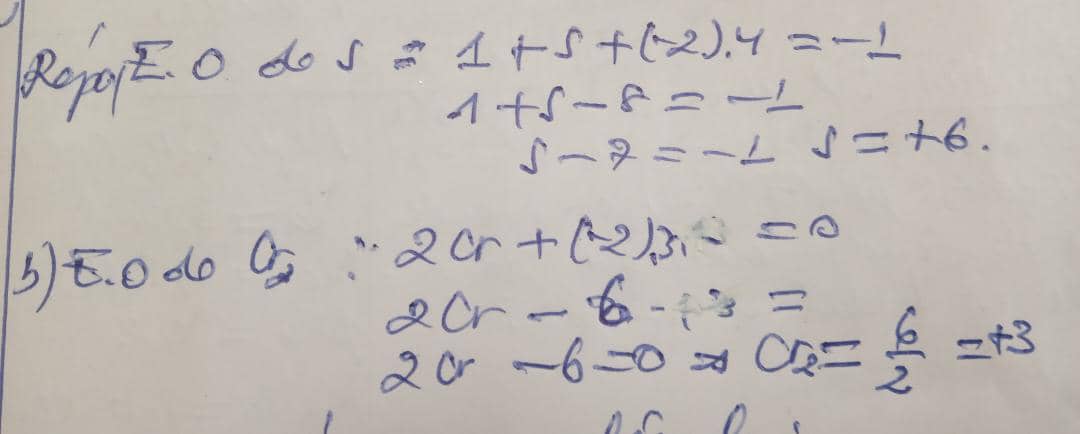 Répa) E.O do S = 1 + S + (-2).4 = -1
1 + S - 8 = -1
S - 7 = -1 S = +6.
b) E.O do Cr₂ : 2Cr + (-2).3 = 0
2Cr - 6 =
2Cr - 6 = 0 ⇒ Cr₂ = 6/2 = +3